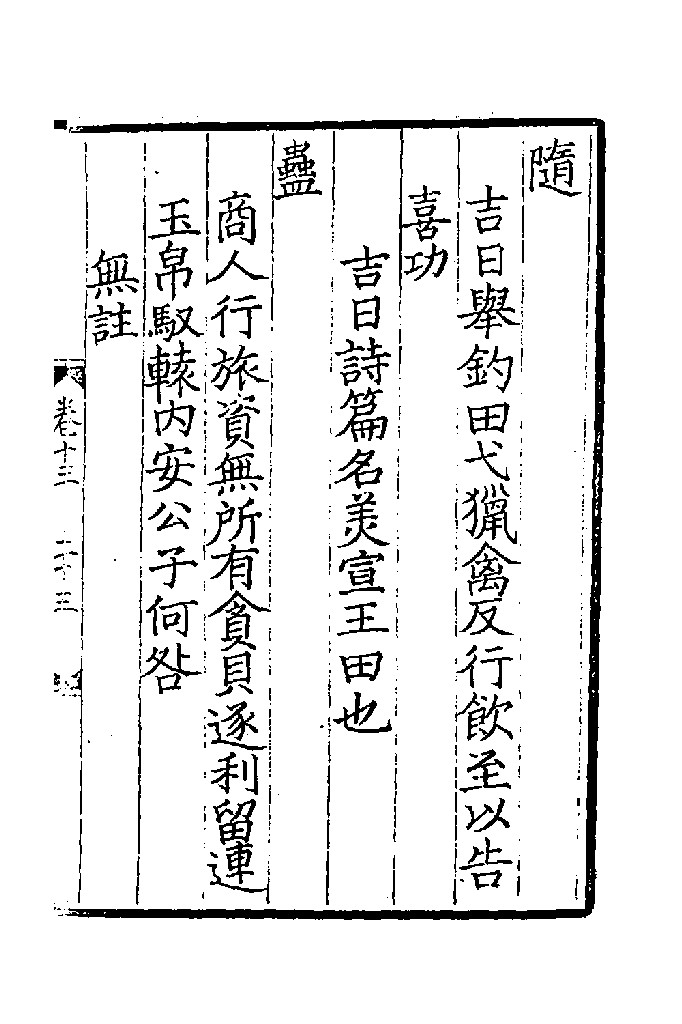 隨
吉日舉釣田弋獵禽反行飲至以告
喜功
吉日詩篇名美宣王田也
蠱
商人行旅資無所有貪貝逐利留連
玉帛馭轅內安公子何咎
無註
卷十三 二十三